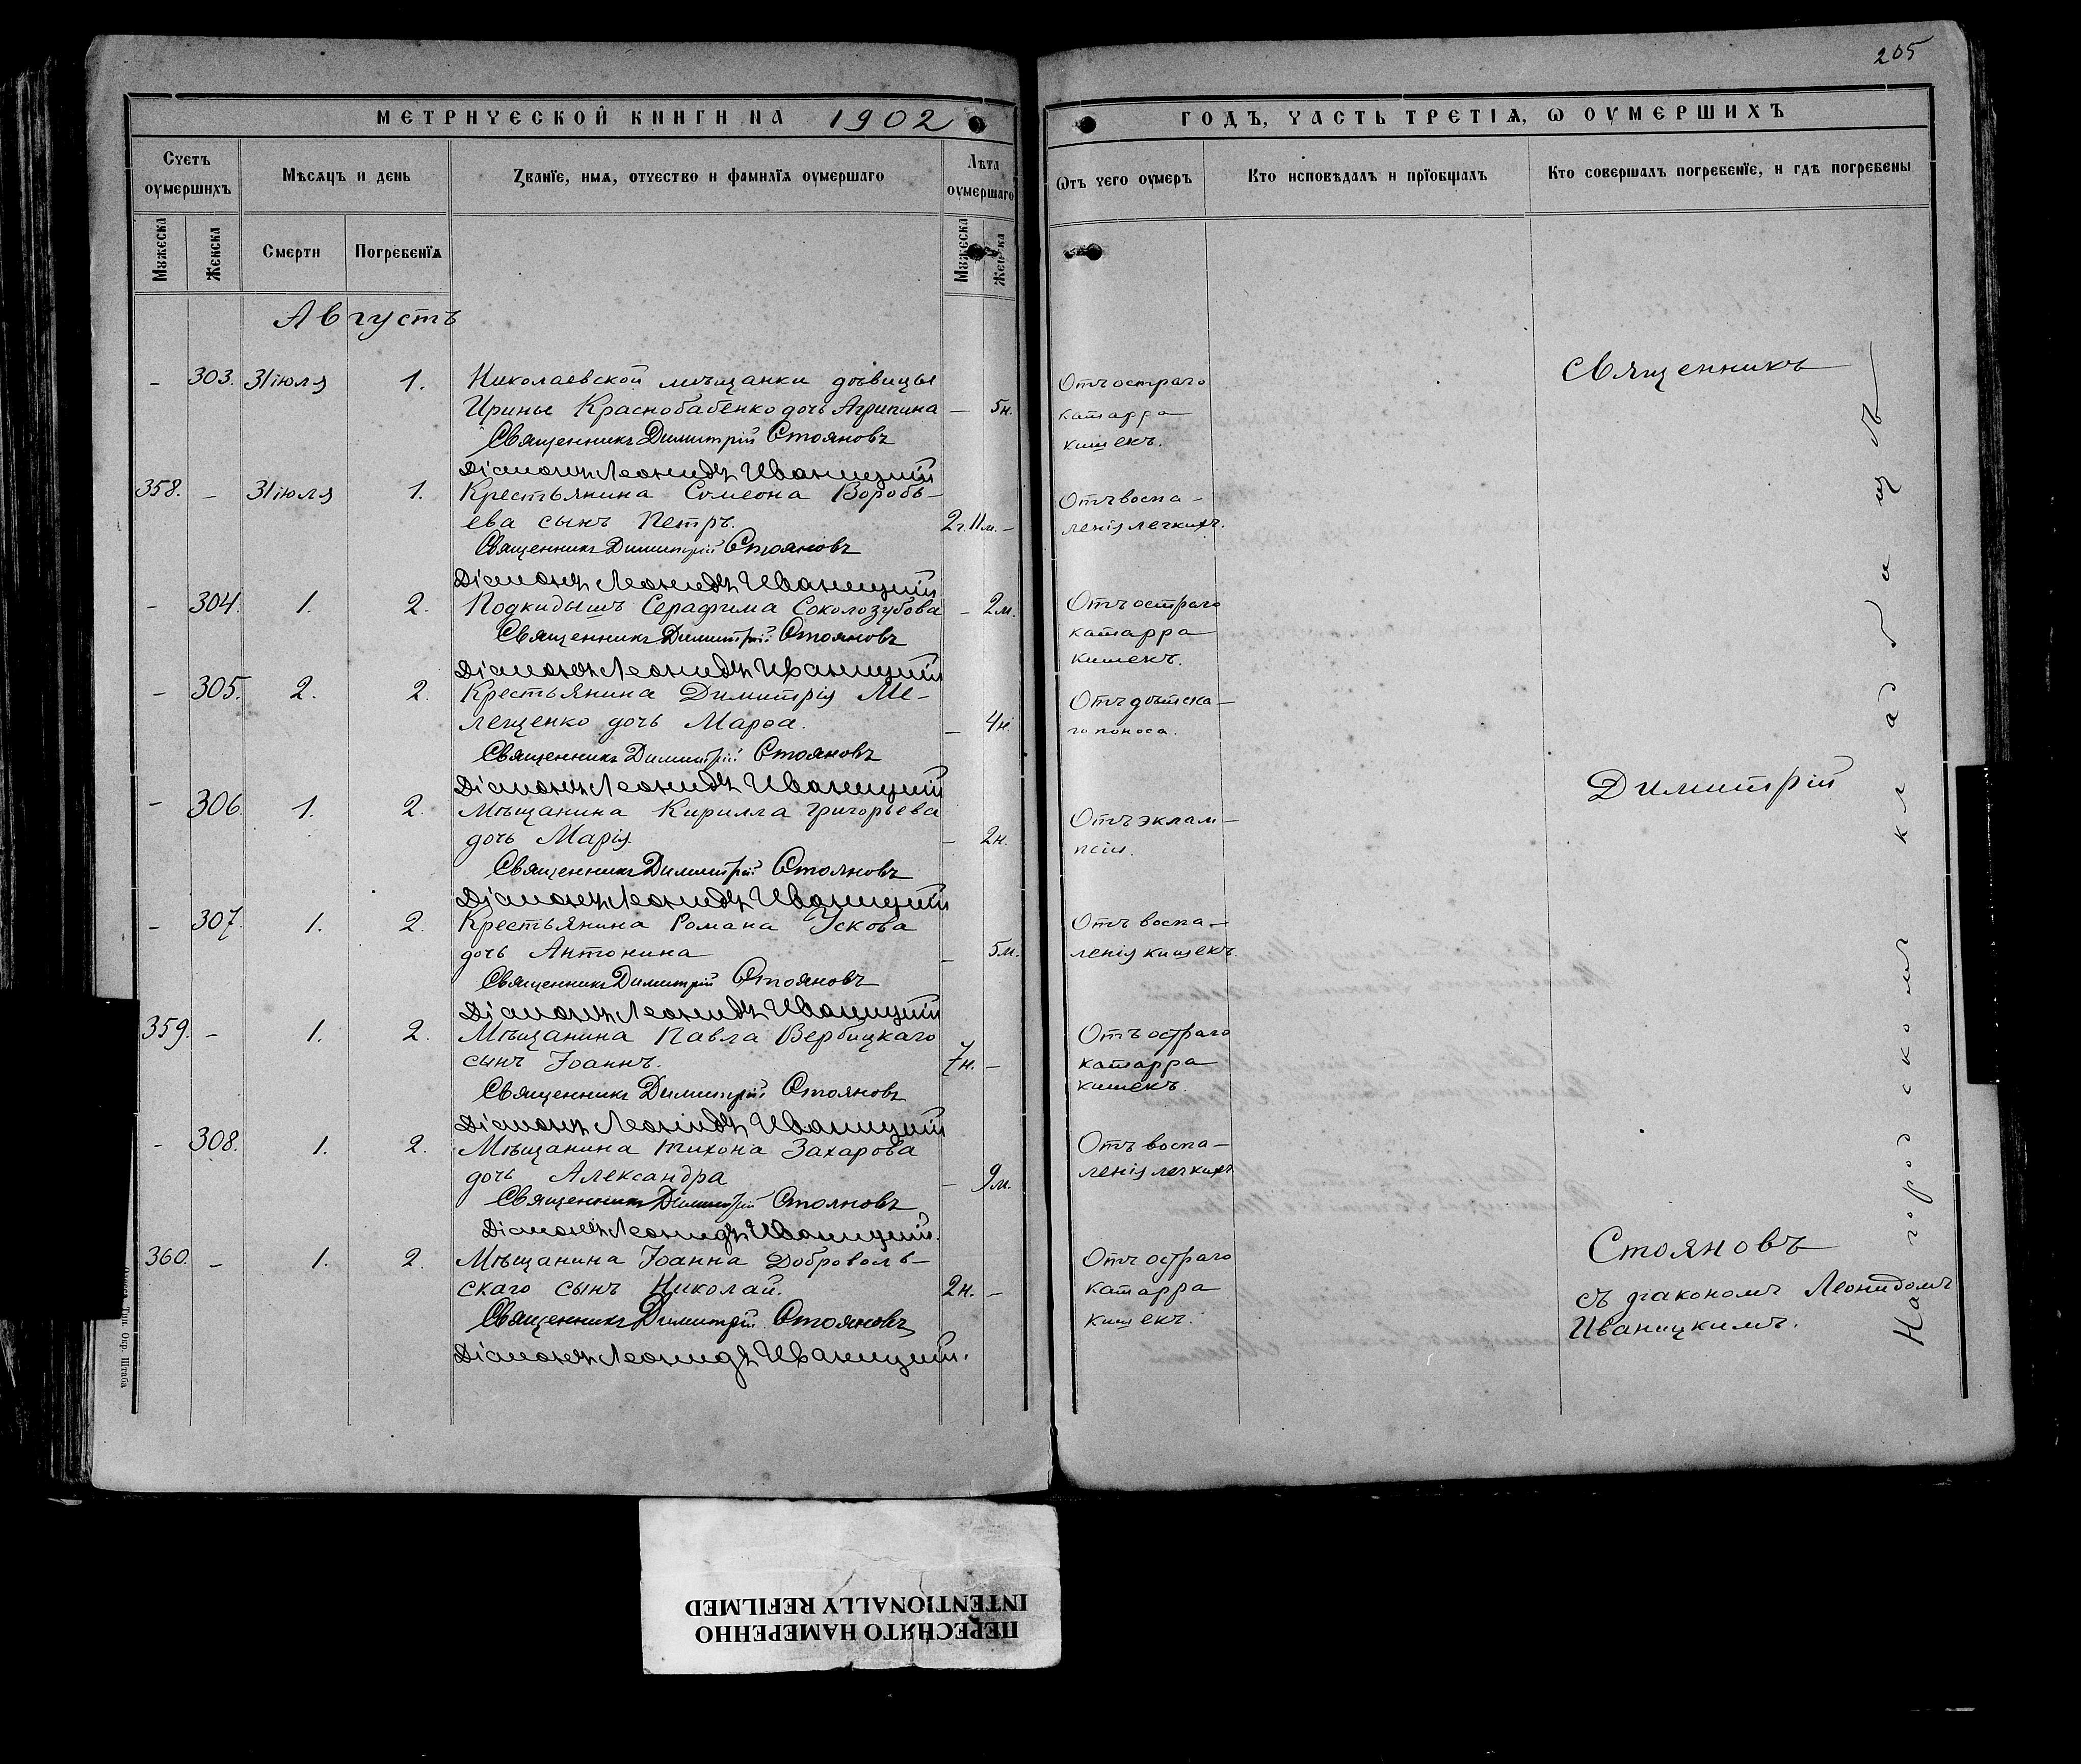 205
МЕТРИЧЕСКОЙ КНИГИ НА 1902
ГОДЪ, ЧАСТЬ ТРЕТІѦ, Ѡ ОУМЕРШИХЪ
Счетъ оумершихъ
Мѣсѧцъ и день
Званїе, имѧ, отчество и фамилїѧ оумершаго
Лѣта оумершаго
Ѿтъ чего оумеръ
Кто исповѣдалъ и прїобщалъ
Кто совершалъ погребенїе, и гдѣ погребены
Мꙋжеска
Женска
Смерти
Погребенїѧ
Мꙋжеска
Женска
Августъ
– 303. 31 іюля 1. Николаевской мѣщанки дѣвицы
Ирины Краснобабенко дочь Агрипина – 5н.
Отъ остраго
катарра
кишекъ.
Священникъ Димитрій Стояновъ
Діаконъ Леонидъ Иваницкій
358. – 31 іюля 1. Крестьянина Симеона Воробь–
ева сынъ Петръ. 2г.11м. –
Отъ воспа–
ленія легкихъ.
Священникъ Димитрій Стояновъ
Діаконъ Леонидъ Иваницкій
– 304. 1. 2. Подкидышъ Серафима Соколозубова – 2м.
Отъ остраго
катарра
кишекъ.
Священникъ Димитрій Стояновъ
Діаконъ Леонидъ Иваницкій
– 305. 2. 2. Крестьянина Димитрія Ме–
лещенко дочь Марѳа. – 4н.
Отъ дѣтска–
го поноса.
Священникъ Димитрій Стояновъ
Діаконъ Леонидъ Иваницкій
– 306. 1. 2. Мѣщанина Кирилла Григорьева
дочь Марія. – 2н.
Отъ эклам–
псіи.
Священникъ Димитрій Стояновъ
Діаконъ Леонидъ Иваницкій
– 307. 1. 2. Крестьянина Романа Ускова
дочь Антонина – 5м.
Отъ воспа–
ленія кишекъ.
Священникъ Димитрій Стояновъ
Діаконъ Леонидъ Иваницкій
359. – 1. 2. Мѣщанина Павла Вербицкаго
сынъ Іоаннъ. 7н. –
Отъ остраго
катарра
кишекъ.
Священникъ Димитрій Стояновъ
Діаконъ Леонидъ Иваницкій
– 308. 1. 2. Мѣщанина Тихона Захарова
дочь Александра – 9м.
Отъ воспа–
ленія легкихъ
Священникъ Димитрій Стояновъ
Діаконъ Леонидъ Иваницкій.
360. – 1. 2. Мѣщанина Іоанна Доброволь–
скаго сынъ Николай. 2н. –
Отъ остраго
катарра
кишекъ.
Священникъ Димитрій Стояновъ
Діаконъ Леонидъ Иваницкій.
Священникъ
Димитрій
Стояновъ
съ діакономъ Леонидомъ
Иваницкимъ.
На городскомъ кладбищѣ
Одесса, Тип. Окр. Штаба
ПЕРЕСНЯТО НАМЕРЕННО
INTENTIONALLY REFILMED